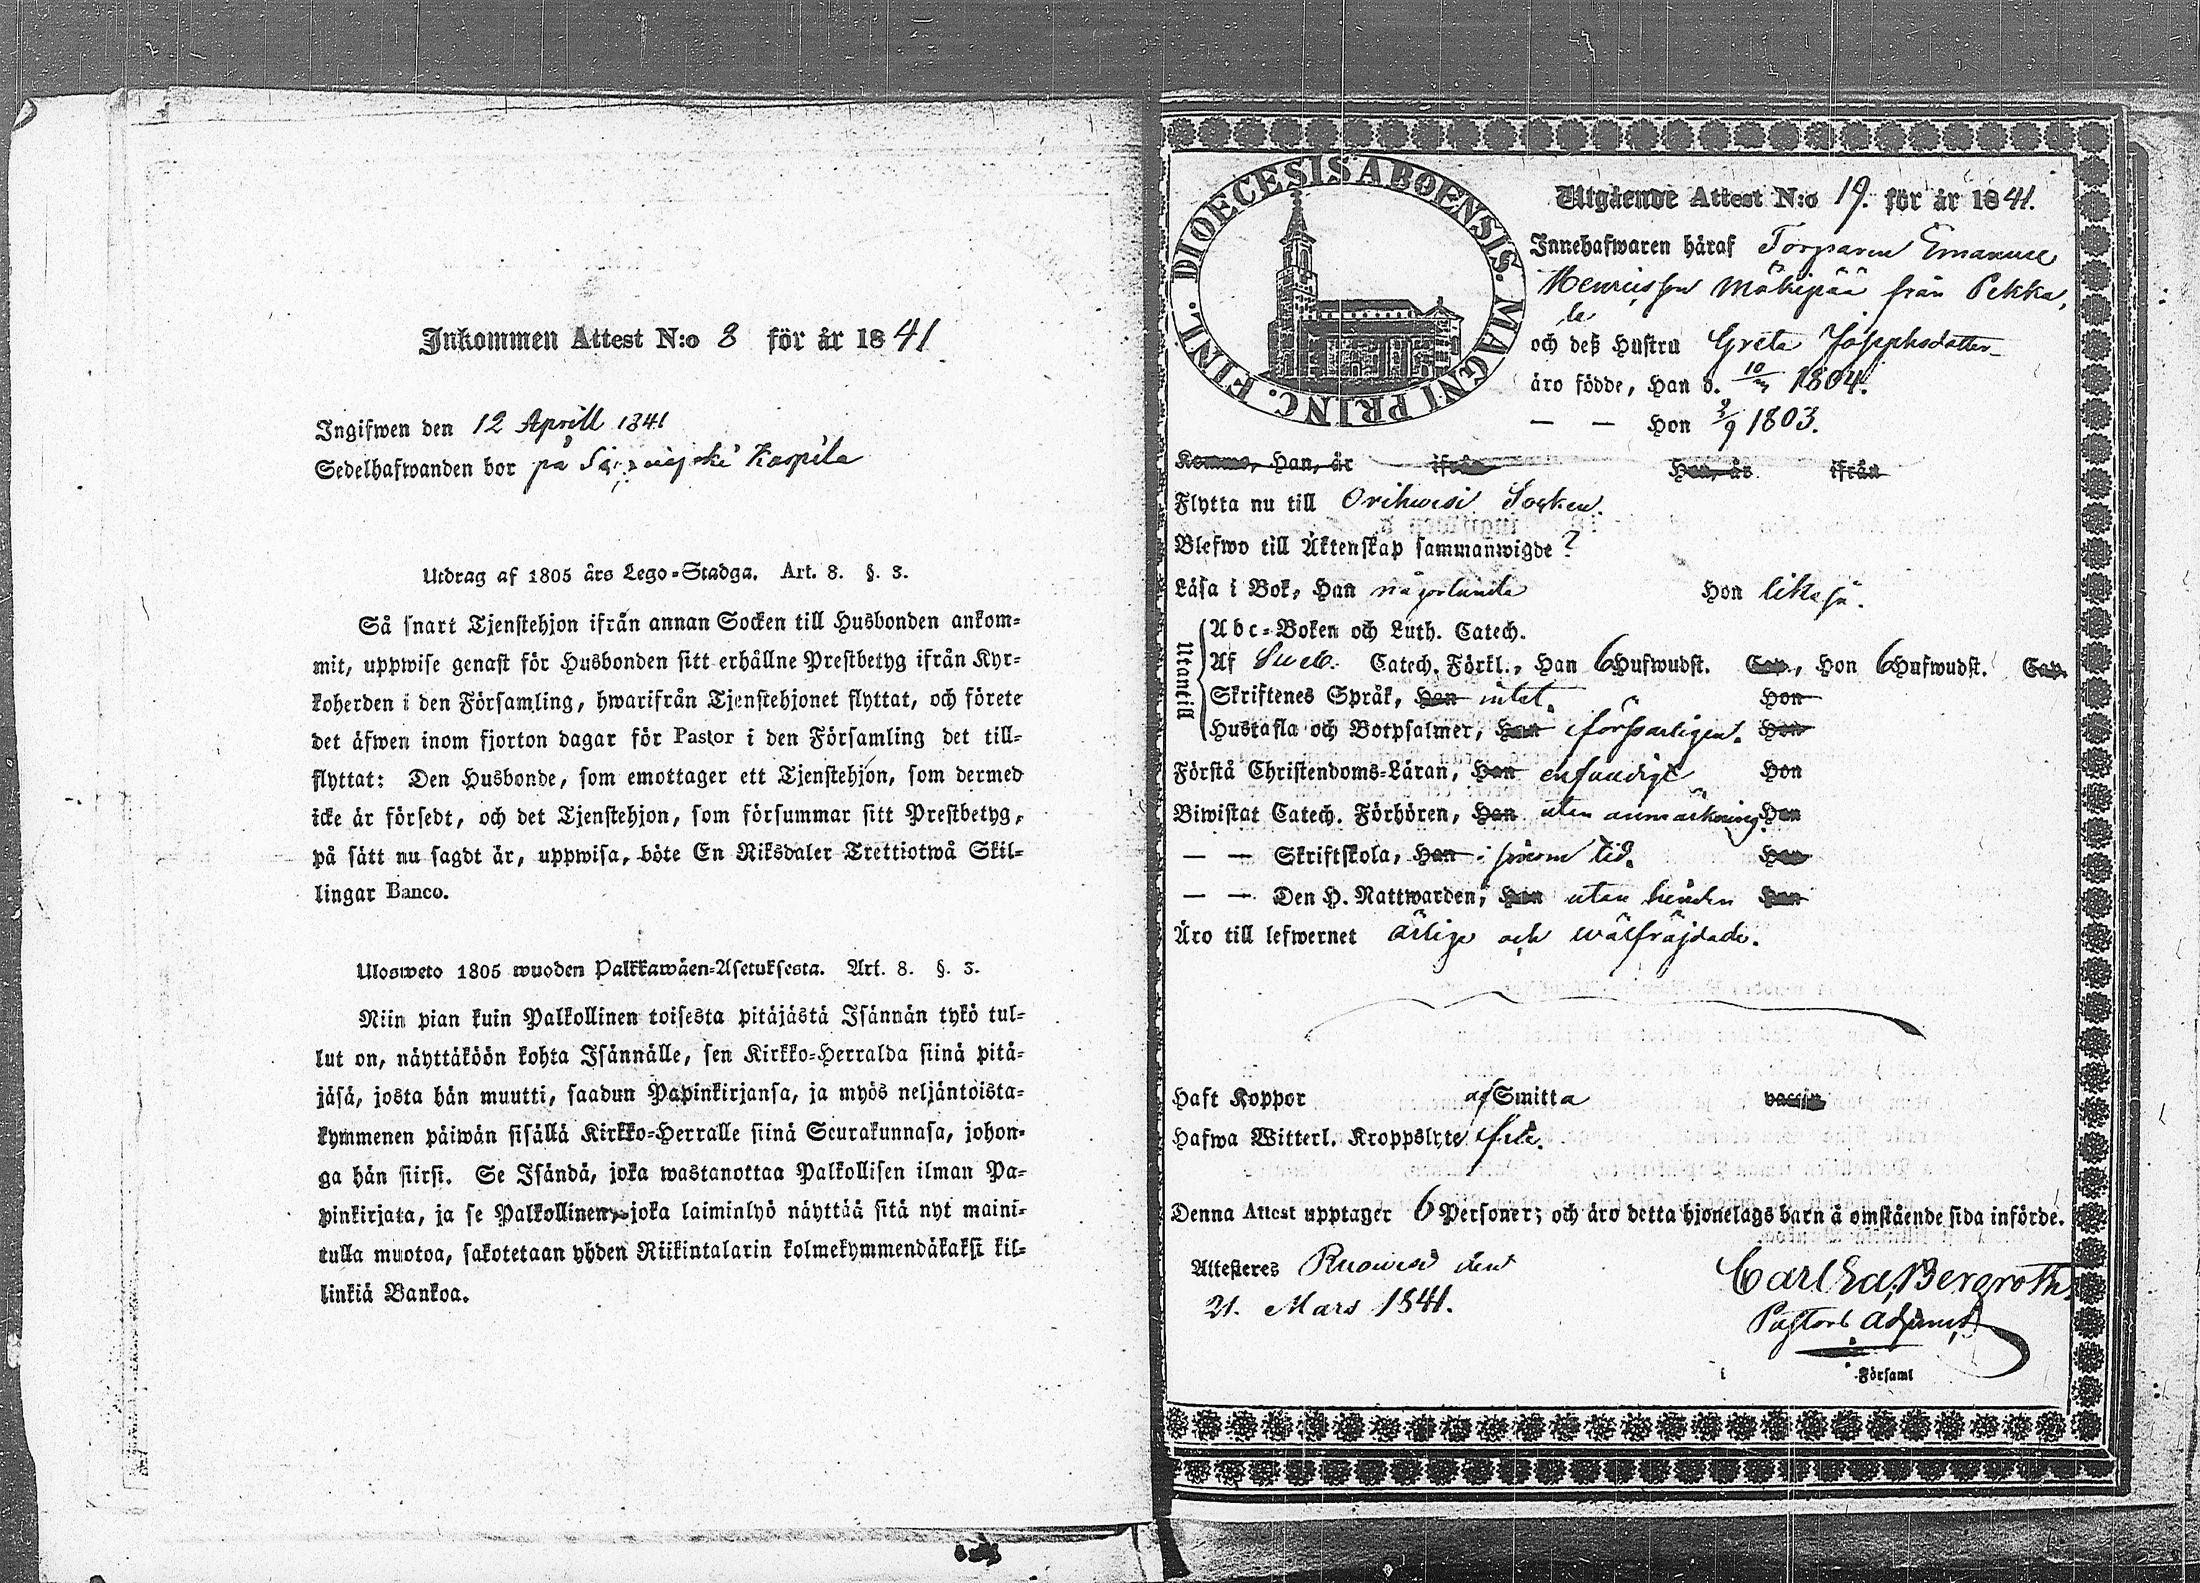 Inkommen Attest N:o 8 för år 1841
Ingifwen den 12 Aprill 1841
Sedelhafwanden bor på
Utdrag af 1805 års Lego-Stadga. Art. 8. §. 3.
Så snart Tjenstehjon ifrån annan Socken till Husbonden ankom-
mit, uppwise genast för Husbonden sitt erhållne Prestbetyg ifrån Kyr-
koherden i den Församling, hwarifrån Tjenstehjonet flyttat, och förete
det äfwen inom fjorton dagar för Pastor i den Församling det till-
flyttat: Den Husbonde, som emottager ett Tjenstehjon, som dermed
icke är försedt, och det Tjenstehjon, som försummar sitt Prestbetyg,
på sätt nu sagdt är, uppwisa, böte En Riksdaler Trettiotwå Skil-
lingar Banco.
Ulosweto 1805 wuoden Palkkawäen-Asetuksesta. Art. 8. §. 3.
Niin pian kuin Palkollinen toisesta pitäjästä Isännän tykö tul-
lut on, näyttäköön kohta Isännälle, sen Kirkko-Herralda siinä pitä-
jäsä, josta hän muutti, saadun Papinkirjansa, ja myös neljäntoista-
kymmenen päiwän sisällä Kirkko-Herralle siinä Seurakunnasa, johon-
ga hän siirsi. Se Isändä, joka wastanottaa Palkollisen ilman Pa-
pinkirjata, ja se Palkollinen, joka laiminlyö näyttää sitä nyt maini-
tulla muotoa, sakotetaan yhden Riikintalarin kolmekymmendäkaksi kil-
linkiä Bankoa.
DIOECESIS ABOENSIS. MAGNI PRINC. FINL.
Utgående Attest N:o 19. för år 1841.
Innehafwaren häraf Torparen Emanuel
Henricsson Mäkipää från Pekka,
la
och deß Hustru Greta Josephsdotter
äro födde, Han d. 1804.
— — Hon 3/9 1803.
Komme, Han, år ifrån Hon, år ifrån
Flytta nu till Orihwesi Socken.
Blefwo till Äktenskap sammanwigde ?
Läsa i Bok, Han någorlunda Hon lika så.
Utantill
Abc-Boken och Luth. Catech.
Af Sweb. Catech. Förkl., Han 6 Hufwudst. Cap., Hon 6 Hufwudst. Cap.
Skriftenes Språk, Han intet. Hon
Hustafla och Botpsalmer, Han Hon
Förstå Christendoms-Läran, Han enfaldigt Hon
Biwistat Catech. Förhören, Han utan anmärkning. Hon
— — Skriftskola, Han i tid. Hon
— — Den H. Nattwarden, Han utan hinder Hon
Äro till lefwernet ärlige och wälfräjdade.
Haft Koppor af Smitta vaccin
Hafwa Witterl. Kroppslyte
Denna Attest upptager 6 Personer; och äro detta hjonelags barn å omstående sida införde.
Attesteres Ruowesi den
21. Mars 1841.
Carl Ed. Bergroth.
Pastors Adjunct
i Församl